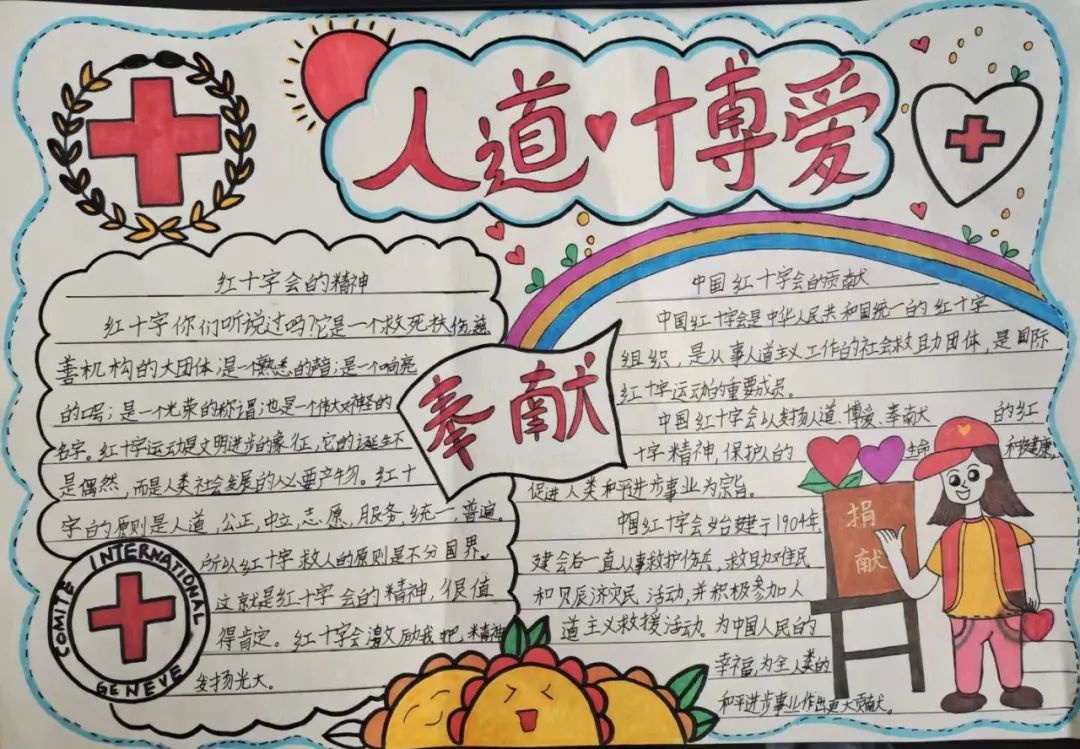 人道·十博爱
红十字会的精神
红十字你们听说过吗?它是一个救死扶伤慈
善机构的大团体;是一个熟悉的声音;是一个响亮
的口号;是一个光荣的称谓;也是一个伟大神圣的
名字。红十字运动是文明进步的象征,它的诞生不
是偶然,而是人类社会发展的必要产物。红十
字的原则是人道,公正,中立,志愿,服务,统一,普遍。
所以红十字救人的原则是不分国界。
这就是红十字会的精神,很值
得肯定。红十字会激励我把精神
发扬光大。
COMITE INTERNATIONAL GENEVE
奉献
中国红十字会的贡献
中国红十字会是中华人民共和国统一的红十字
组织,是从事人道主义工作的社会救助团体,是国际
红十字运动的重要成员。
中国红十字会以发扬人道、博爱、奉献的红
十字精神,保护人的生命和健康,
促进人类和平进步事业为宗旨。
中国红十字会台建于1904年
建会后一直从事救护伤兵、救助难民
和贝辰济灾民活动,并积极参加人
道主义救援活动。为中国人民的
幸福,为全人类的
和平进步事业作出重大贡献。
捐献